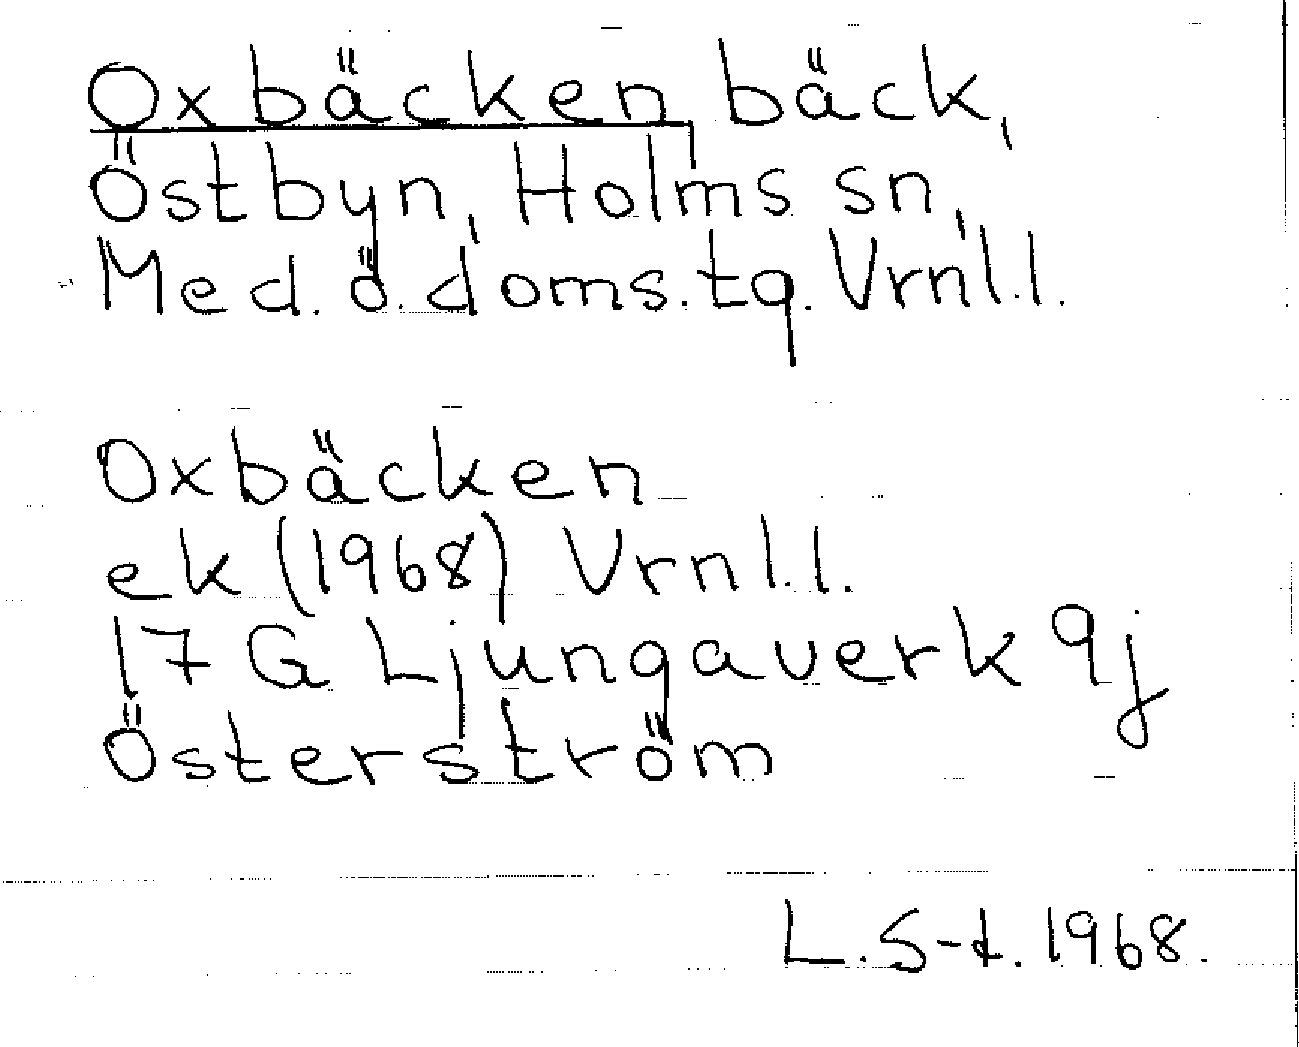 Oxbäcken bäck,
Östbyn, Holms sn,
Med. ö. doms. tg. Vrnl. l.
Oxbäcken
ek (1968) Vrnl. l.
17 G Ljungaverk 9j
Österström
L. S-t. 1968.